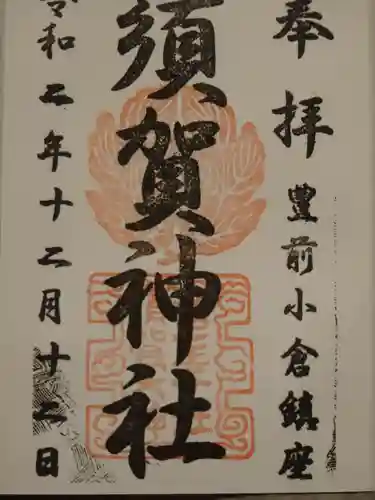 奉拝
豊前小倉鎮座
須賀神社
令和二年十二月十二日